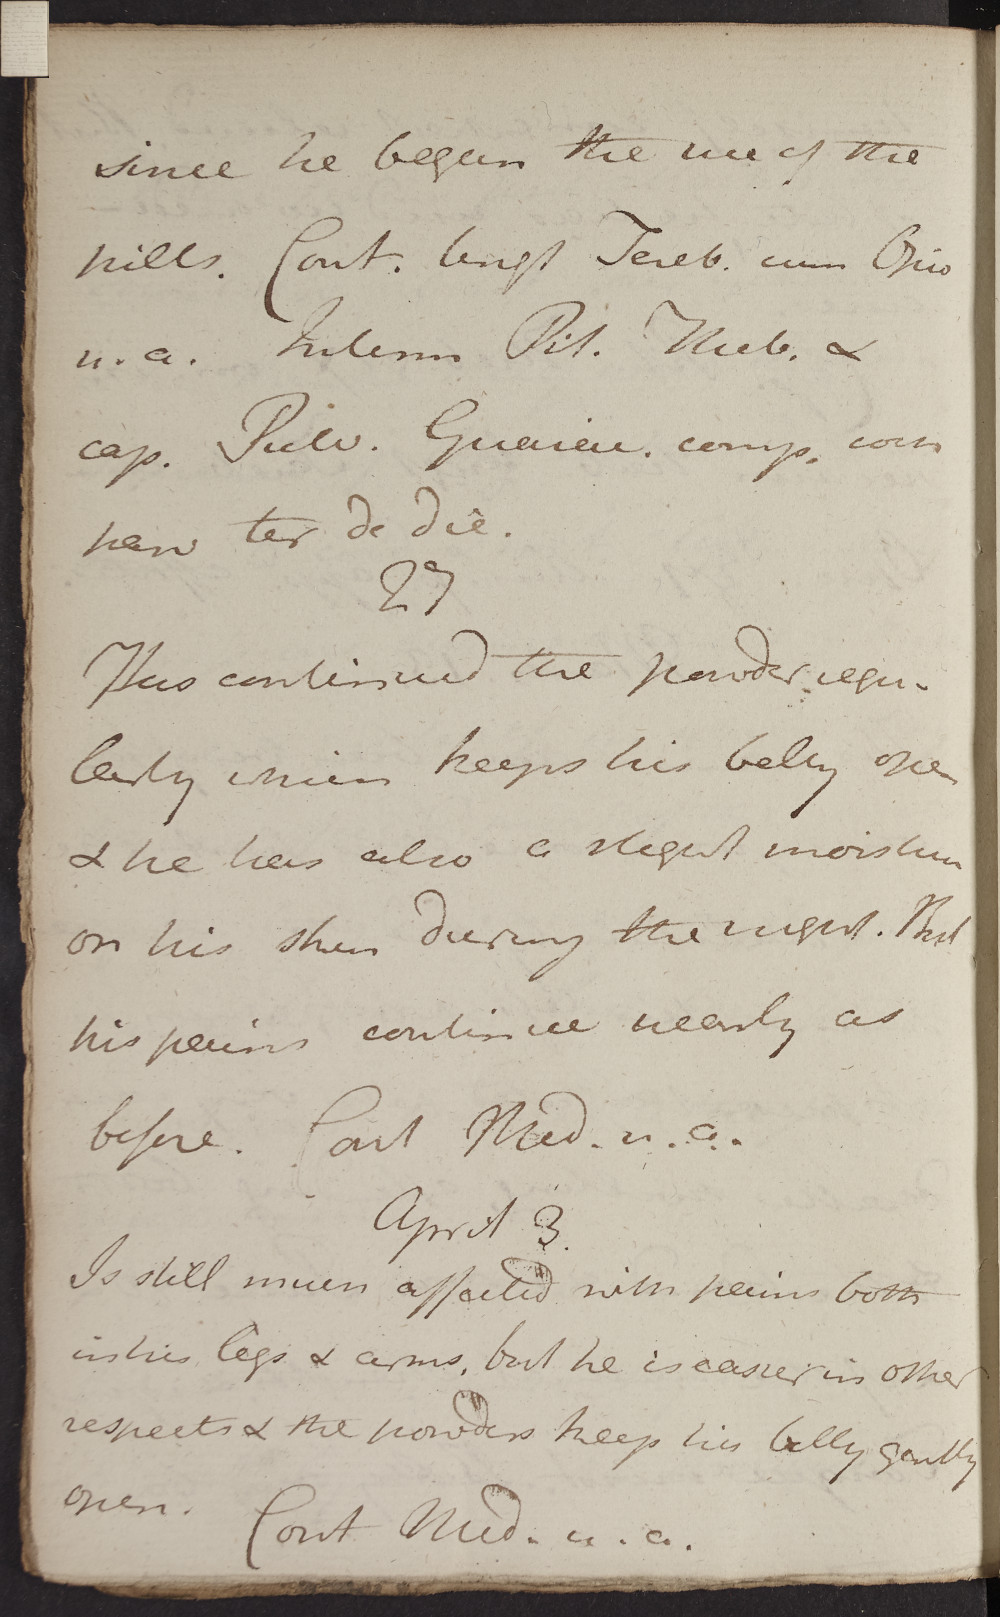 since he began the use of the
pills. Cont. Ungt Tereb. cum Opio
u. a. Interm Pil. Rheb. &
cap. Pulv. Guaiac. comp. cum
ter de die.
27
Has continued the powder regu-
larly which keeps his belly open
& he has also a slight moisture
on his skin during the night. But
his pains continue nearly as
before. Cont Med. u. a.
April 3.
Is still much affected with pains both
in his legs & arms, but he is easier in other
respects & the powders keep his belly gently
open. Cont Med. u. a.